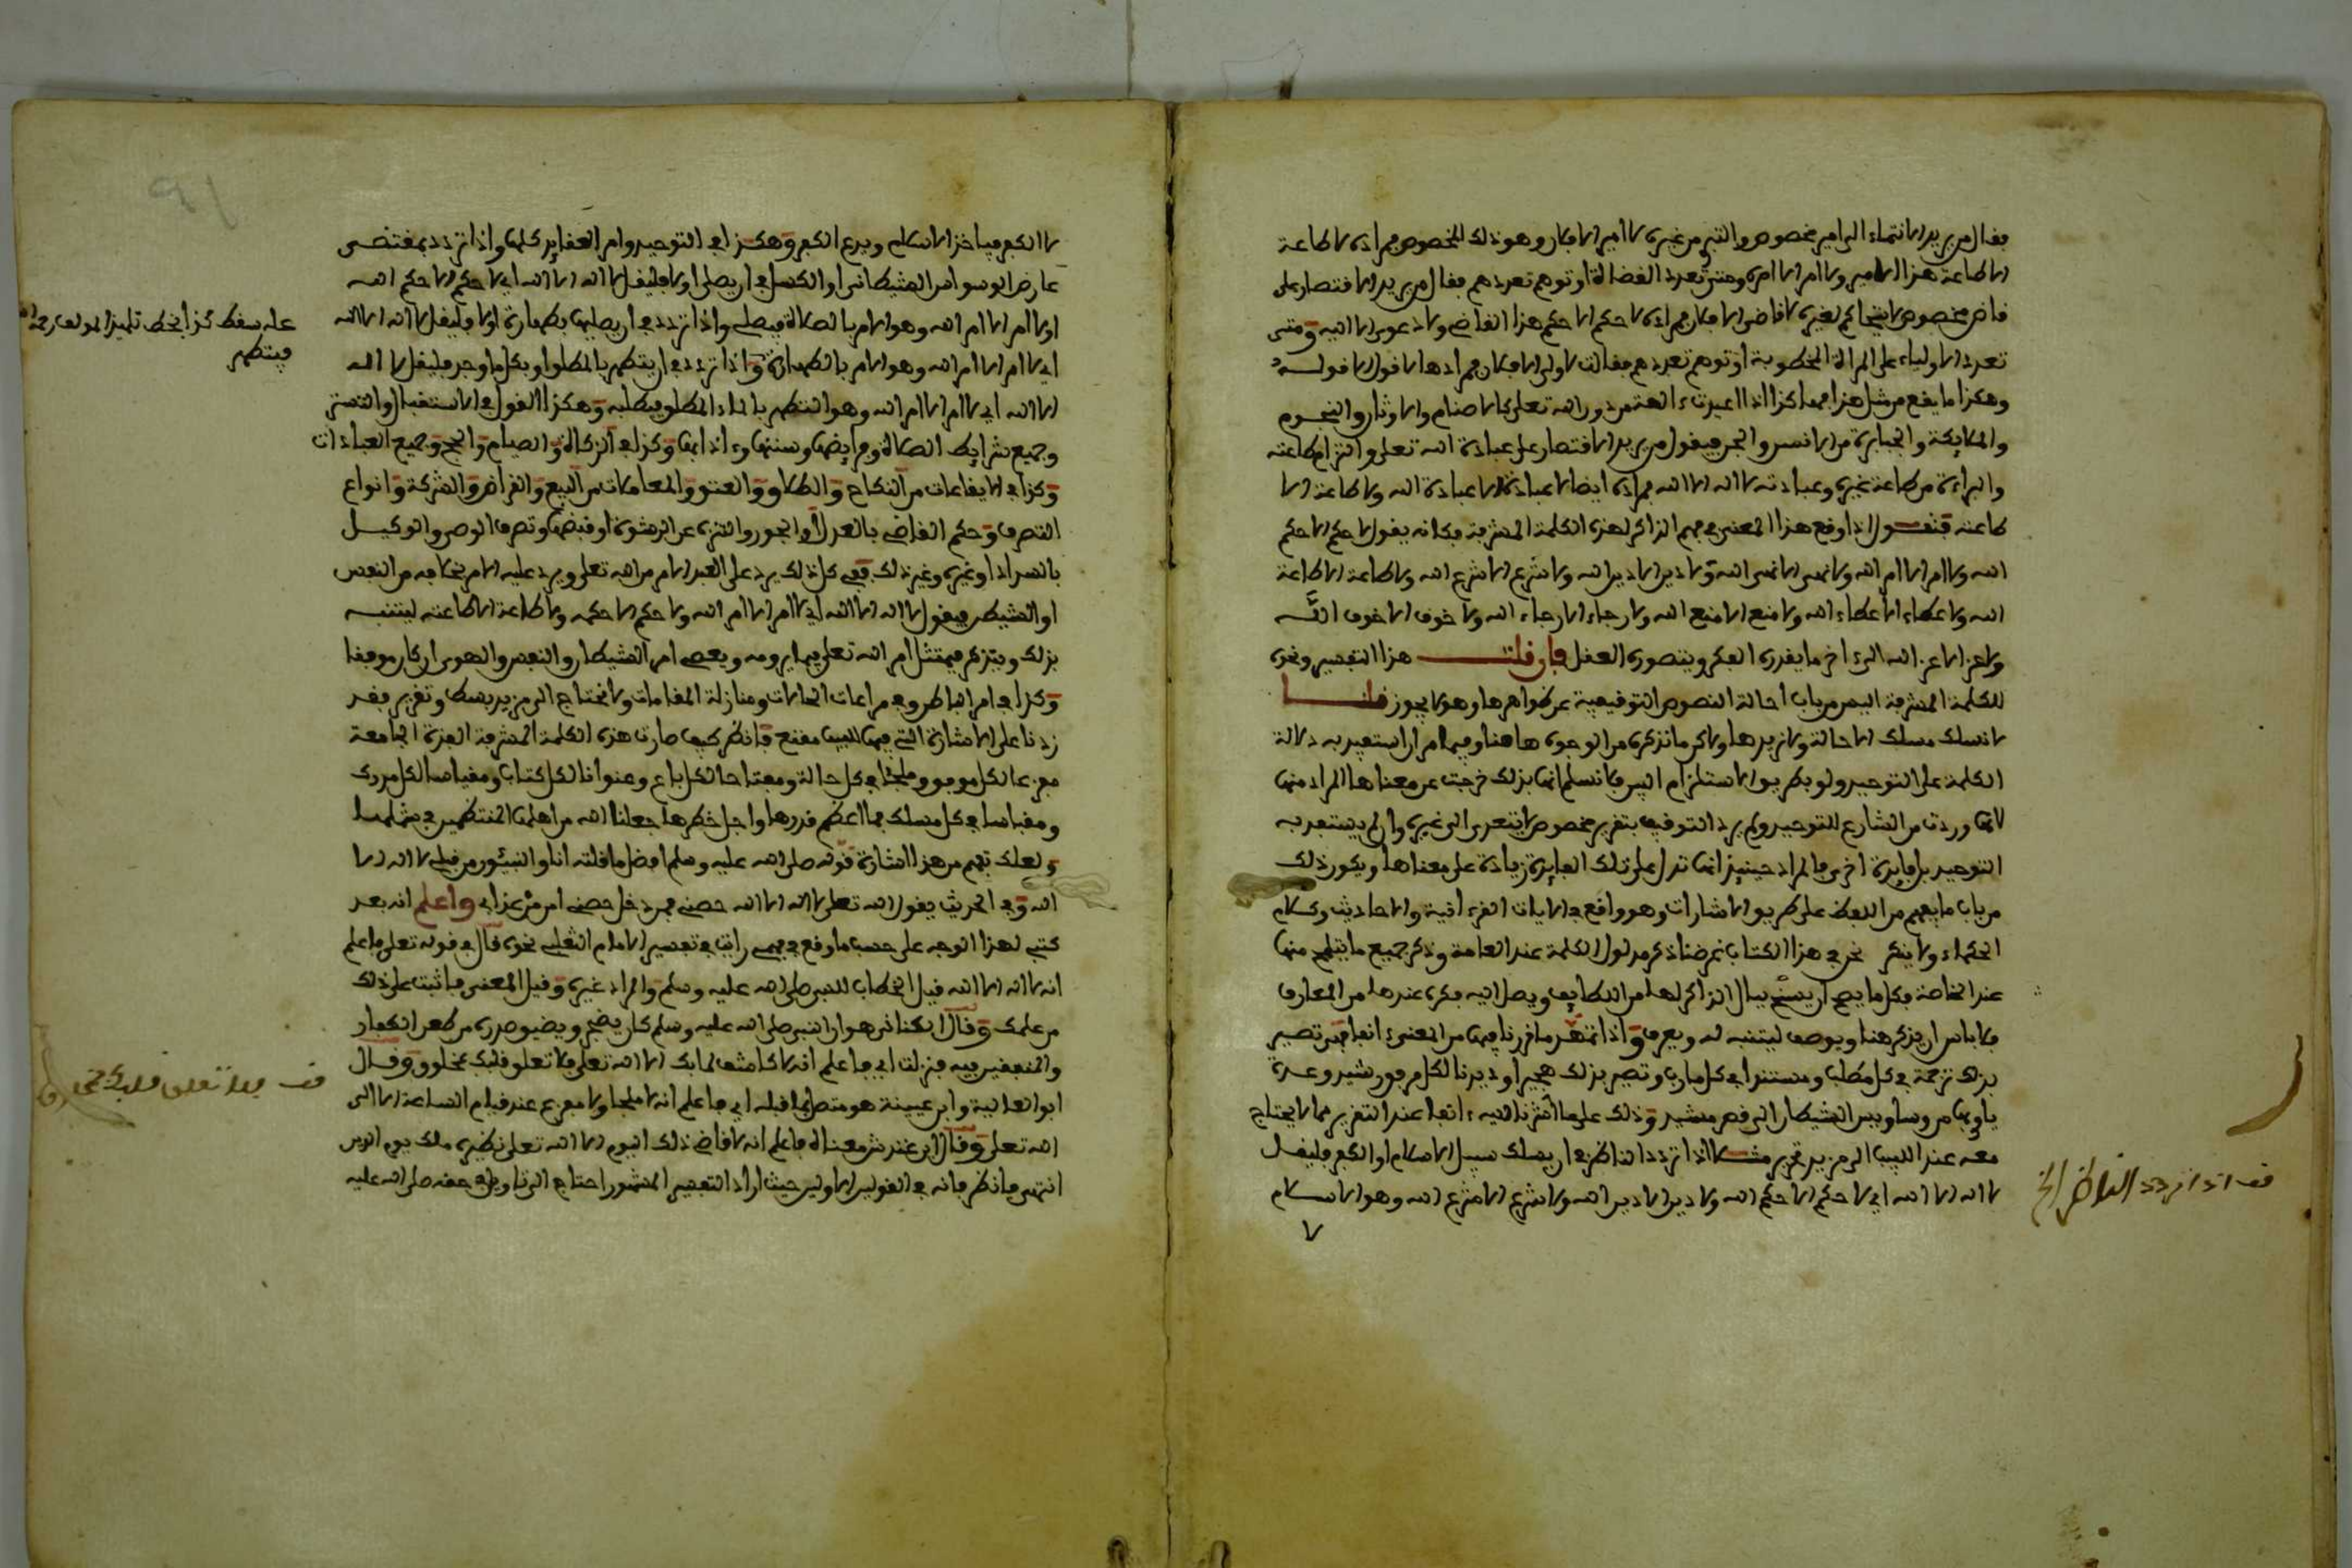 فقال من يريد الانتماء الى امير مخصوص والتبري من غيره لا امير الا فلان وهو ذلك المخصوص فمراده لا طاعة
الا طاعة هذا الامير ولا امر الا امره ومتى تعدد القضاة او توهم تعددهم فقال من يريد الاقتصار على
قاض مخصوص لا يتحاكم لغيره لا قاضي الا فلان فمراده لا حكم الا حكم هذا القاضي ولا دعوى الا اليه ومتى
تعدد الاولياء على المراة المخطوبة او توهم تعددهم فقالت لا ولي الا فلان فمرادها لا قول الا قوله
وهكذا ما يقع من مثل هذا فهكذا اذا اعبدت ءالهة من دون الله تعلى كالاصنام والاوثان والنجوم
والملايكة والجبابرة من الانس والجن فيقول من يريد الاقتصار على عبادة الله تعلى والتزام طاعته
والبراءة من طاعة غيره وعبادته لا اله الا الله فمراده ايضا لا عبادة الا عبادة الله ولا طاعة الا
طاعته فنقول اذا وقع هذا المعنى في فهم الذاكر لهذه الكلمة المشرفة فكانه يقول لا حكم الا حكم
الله ولا امر الا امر الله ولا نهي الا نهي الله ولا دين الا دين الله ولا شرع الا شرع الله ولا طاعة الا طاعة
الله ولا عطاء الا عطاء الله ولا منع الا منع الله ولا رجاء الا رجاء الله ولا خوف الا خوف الله
ولا عز الا عز الله الى ءاخر ما يقدره الفكر ويتصوره العقل فان قلت هذا التفسير ونحوه
للكلمة المشرفة اليس من باب احالة النصوص التوقيفية عن ظواهرها وهو لا يجوز قلنا
لا نسلك مسلك الاحالة ولا نريدها ولاكن ما نذكره من الوجوه هاهنا وفيما مر ان استفيد به دلالة
الكلمة على التوحيد ولو بطريق الاستلزام البين فلا نسلم انها بذلك خرجت عن معناها المراد منها
لانها وردت من الشارع للتوحيد ولم يرد التوقيف بتقرير مخصوص لا يتعدى الى غيره وان لم يستفد به
التوحيد بل فايدة اخرى فالمراد حينيذ انها تدل على تلك الفايدة زيادة على معناها ويكون ذلك
من باب ما يفهم من اللفظ على طريق الاشارات وهو واقع في الايات القرءانية والاحاديث وكلام
الحكماء ولا ينكر نحن في هذا الكتاب غرضنا ذكر مدلول الكلمة عند العامة وذكر جميع ما يتلمح منها
عند الخاصة فكل ما يصح ان يسنح ببال الذاكر لها من اللطايف ويصل اليه فكره عندها من المعارف
فلا باس ان يذكر هنا ويوصف ليتنبه له ويعرف واذا تمهد ما قررنا فيها من المعنى ءانفا فقد تصير
بذلك ترجمة في كل مطلب ومستندا في كل مارب وتصير بذلك هجيرا وديدنا لكل مر فوز شيد وعدة
ياوى بها من وساويس الشيطان الى قصر مشيد وذلك على ما اشرنا اليه ءانفا عند التقرير مما لا يحتاج
معه عند اللبيب الى مزيد تحرير مثلا اذا تردد الناظر في ان يسلك سبيل الاسلام او الكفر فليقل
لا اله الا الله اي لا حكم الا حكم الله ولا دين الا دين الله ولا شرع الا شرع الله وهو الاسلام
٧
قف اذا تردد الناظر الخ
لا الكفر فياخذ الاسلام ويدع الكفر وهكذا في التوحيد وامر العقايد كلها واذا تردد بمقتضى
عارض الوسواس الشيطاني او الكسل في ان يصلي او لا فليقل لا اله الا الله اي لا حكم الا حكم الله
او لا امر الا امر الله وهو الامر بالصلاة فيصلي واذا تردد في ان يصليها بطهارة او لا فليقل لا اله الا الله
اي لا امر الا امر الله وهو الامر بالطهارة واذا تردد في ان يتطهر بالمطلق او بكل ما وجد فليقل لا اله
الا الله اي لا امر الا امر الله وهو التطهر بالماء المطلق فيطلبه وهكذا القول في الاستقبال والتستر
وجميع شرايط الصلاة وفرايضها وسننها وءادابها وكذا في الزكاة والصيام والحج وجميع العبادات
وكذا في الايقاعات من النكاح والطلاق والعتق والمعاملات من البيع والقراض والشركة وانواع
التصرف وحكم القاضي بالعدل او الجور والتنزه عن الرشوة او قبضها وتصرف الوصي والوكيل
بالسداد او غيره وغير ذلك ففي كل ذلك يرد على العبد الامر من الله تعلى ويرد عليه الامر بخلافه من النفس
او الشيطن فيقول لا اله الا الله اي لا امر الا امر الله ولا حكم الا حكمه ولا طاعة الا طاعته ليتنبه
بذلك ويتذكر فيمتثل امر الله تعلى فيما يرومه ويعصي امر الشيطان والنفس والهوى ان كان موفقا
وكذا في امر الباطن وفي مراعات الحالات ومنازلة المقامات ولا نحتاج الى مزيد بسط وتقرير بقدر
زدنا على الاشارة التي فيها للبيب مقنع فانظر كيف صارت هذه الكلمة المشرفة الفذة الجامعة
مفزعا لكل موفق وملجئا في كل حالة ومفتاحا لكل باع وعنوانا لكل كتاب ومقياسا لكل مدرك
ومقباسا في كل مسلك فما اعظم قدرها واجل خطرها جعلنا الله من اهلها المنتظمين في شملها
ولعلك تفهم من هذا اشارة قوله صلى الله عليه وسلم افضل ما قلته انا والنبيئون من قبلي لا اله الا
الله وفي الحديث يقول الله تعلى لا اله الا الله حصني فمن دخل حصني امن من عذابي واعلم انه بعد
كتبي لهذا الوجه على حسب ما وقع في فهمي رايت في تفسير الامام الثعلبي نحوه قال في قوله تعلى فاعلم
انه لا اله الا الله قيل الخطاب للنبي صلى الله عليه وسلم والمراد غيره وقيل المعنى فاثبت على ذلك
من علمك وقال الكناني هو ان النبي صلى الله عليه وسلم كان يضجر ويضيق صدره من طعن الكفار
والمنافقين فيه فنزلت اي فاعلم انه لا كاشف لما بك الا الله تعلى فلا تعلق قلبك بمخلوق وقال
ابو العالية وابن عيينة هو متصل بما قبله اي فاعلم انه لا ملجا ولا مفزع عند قيام الساعة الا الى
الله تعلى وقال ابن عندش معناه فاعلم انه لا قاضي ذلك اليوم الا الله تعلى نظيره ملك يوم الدين
انتهى فانظر فانه في القولين الاولين حيث اراد التفسير المشهور احتاج الى التاويل في حقه صلى الله عليه
عله سقط كذا بخط تلميذ المولف رحمه الله
فيتطهر
قف فلا تعلق قلبك